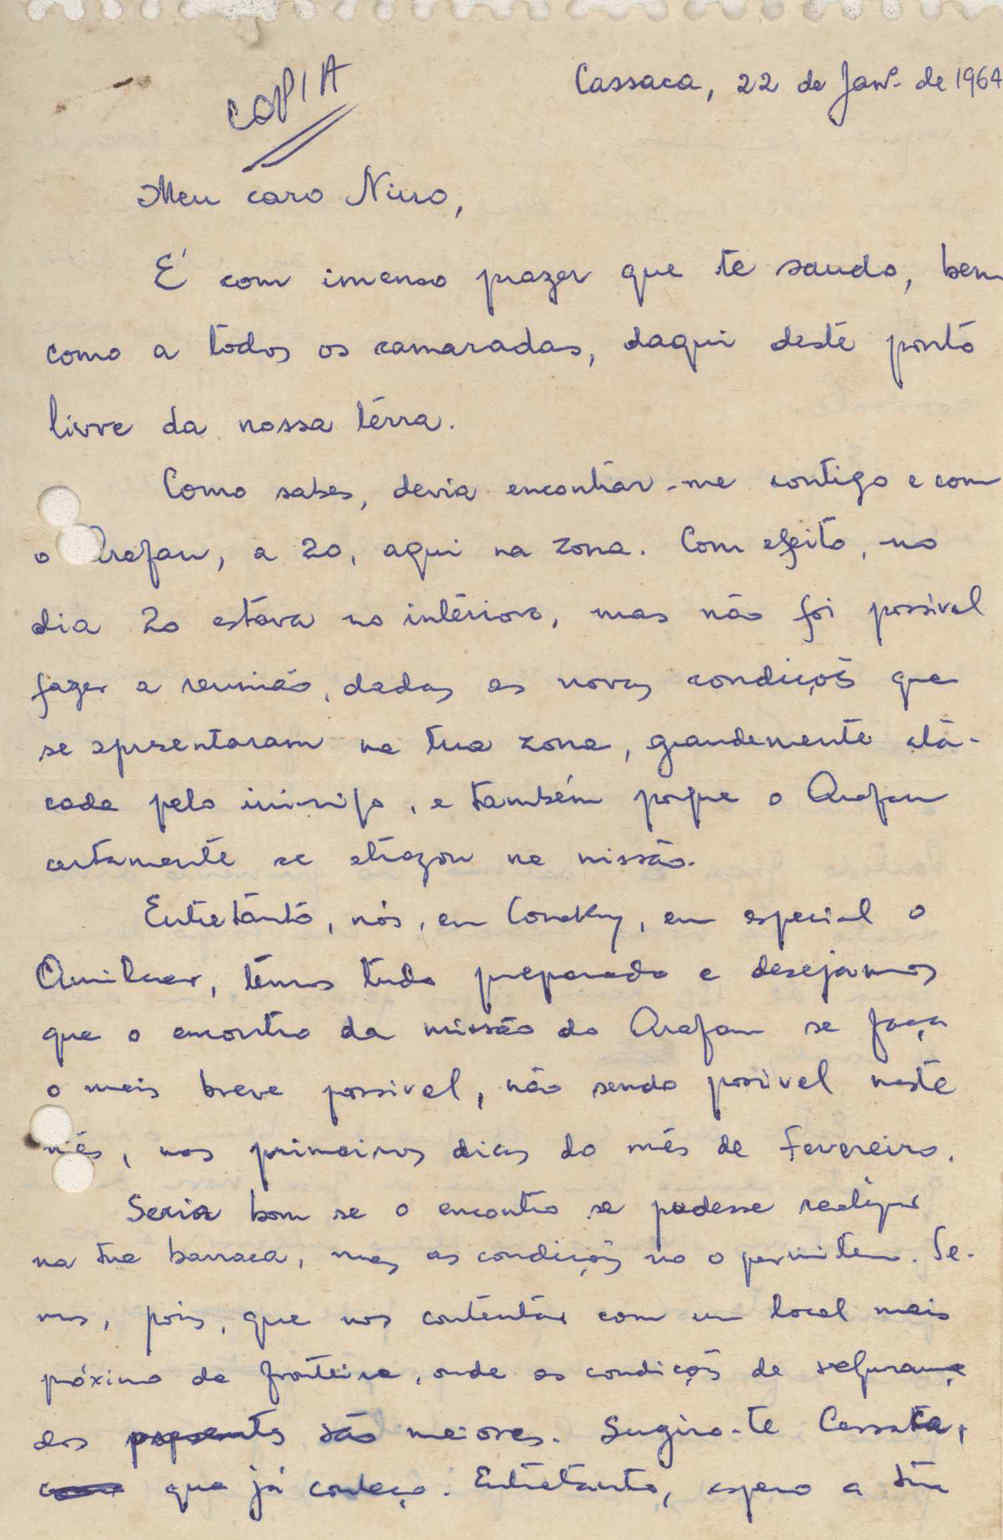 COPIA
Cassaca, 22 de Janº de 1964
Meu caro Nino,
É com imenso prazer que te saudo, bem
como a todos os camaradas, daqui deste ponto
livre da nossa terra.
Como sabes, devia encontrar-me contigo e com
o Arafan, a 20, aqui na zona. Com efeito, no
dia 20 estava no interior, mas não foi possivel
fazer a reunião, dadas as novas condições que
se apresentaram na tua zona, grandemente ata-
cada pelo inimigo, e também porque o Arafan
certamente se atrazou na missão.
Entretanto, nós, em Conakry, em especial o
Amilcar, temos tudo preparado e desejamos
que o encontro da missão do Arafan se faça
o mais breve possivel, não sendo possivel neste
mês, nos primeiros dias do mês de Fevereiro.
Seria bom se o encontro se pudesse realizar
na tua barraca, mas as condições no o permitem. Te-
mos, pois, que nos contentar com um local mais
próximo da fronteira, onde as condições de segurança
dos são maiores. Sugiro-te
que já conheço. Entretanto, espero a tua